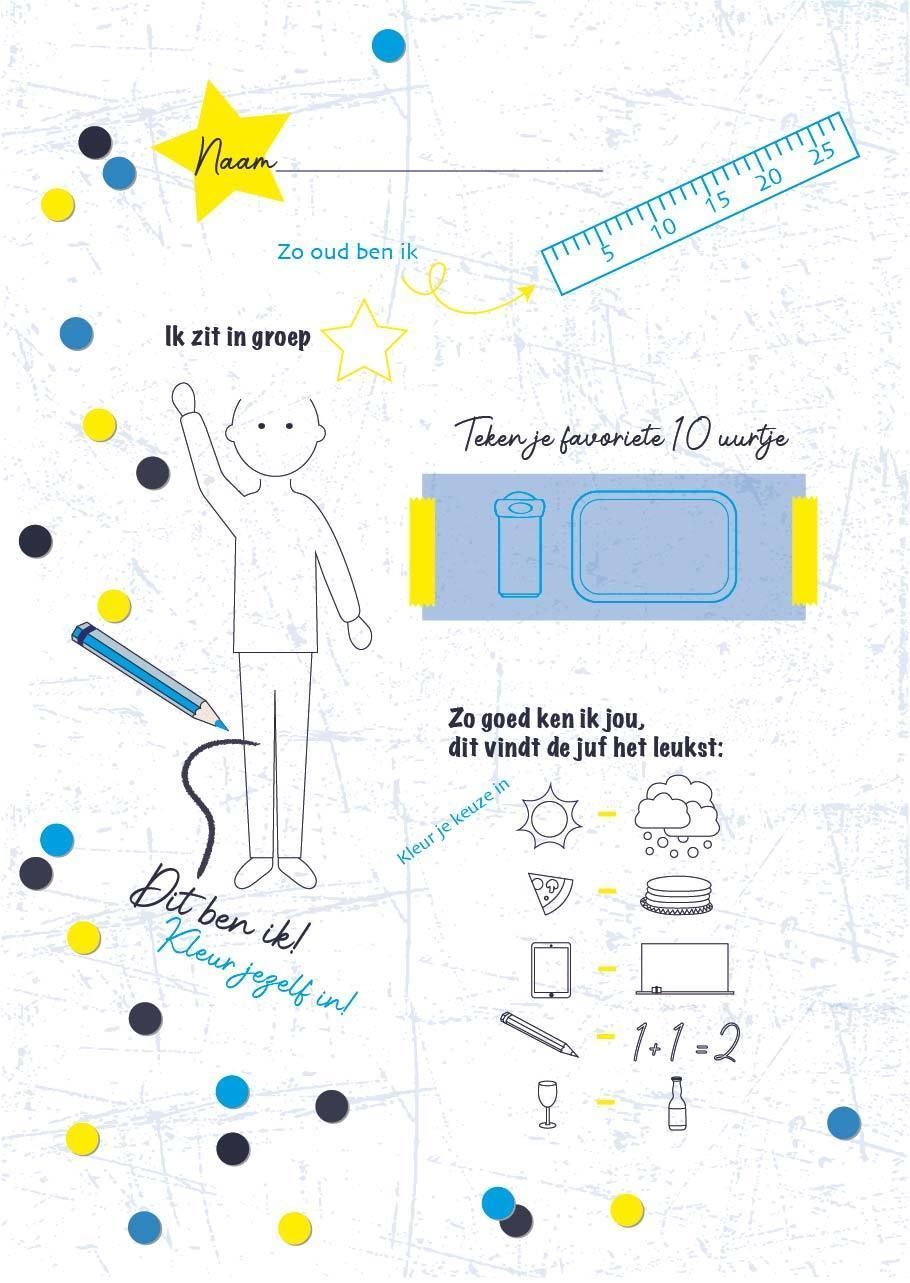 Naam
5 10 15 20 25
Zo oud ben ik
Ik zit in groep
Teken je favoriete 10 uurtje
Zo goed ken ik jou,
dit vindt de juf het leukst:
Kleur je keuze in
1+1=2
Dit ben ik!
Kleur jezelf in!